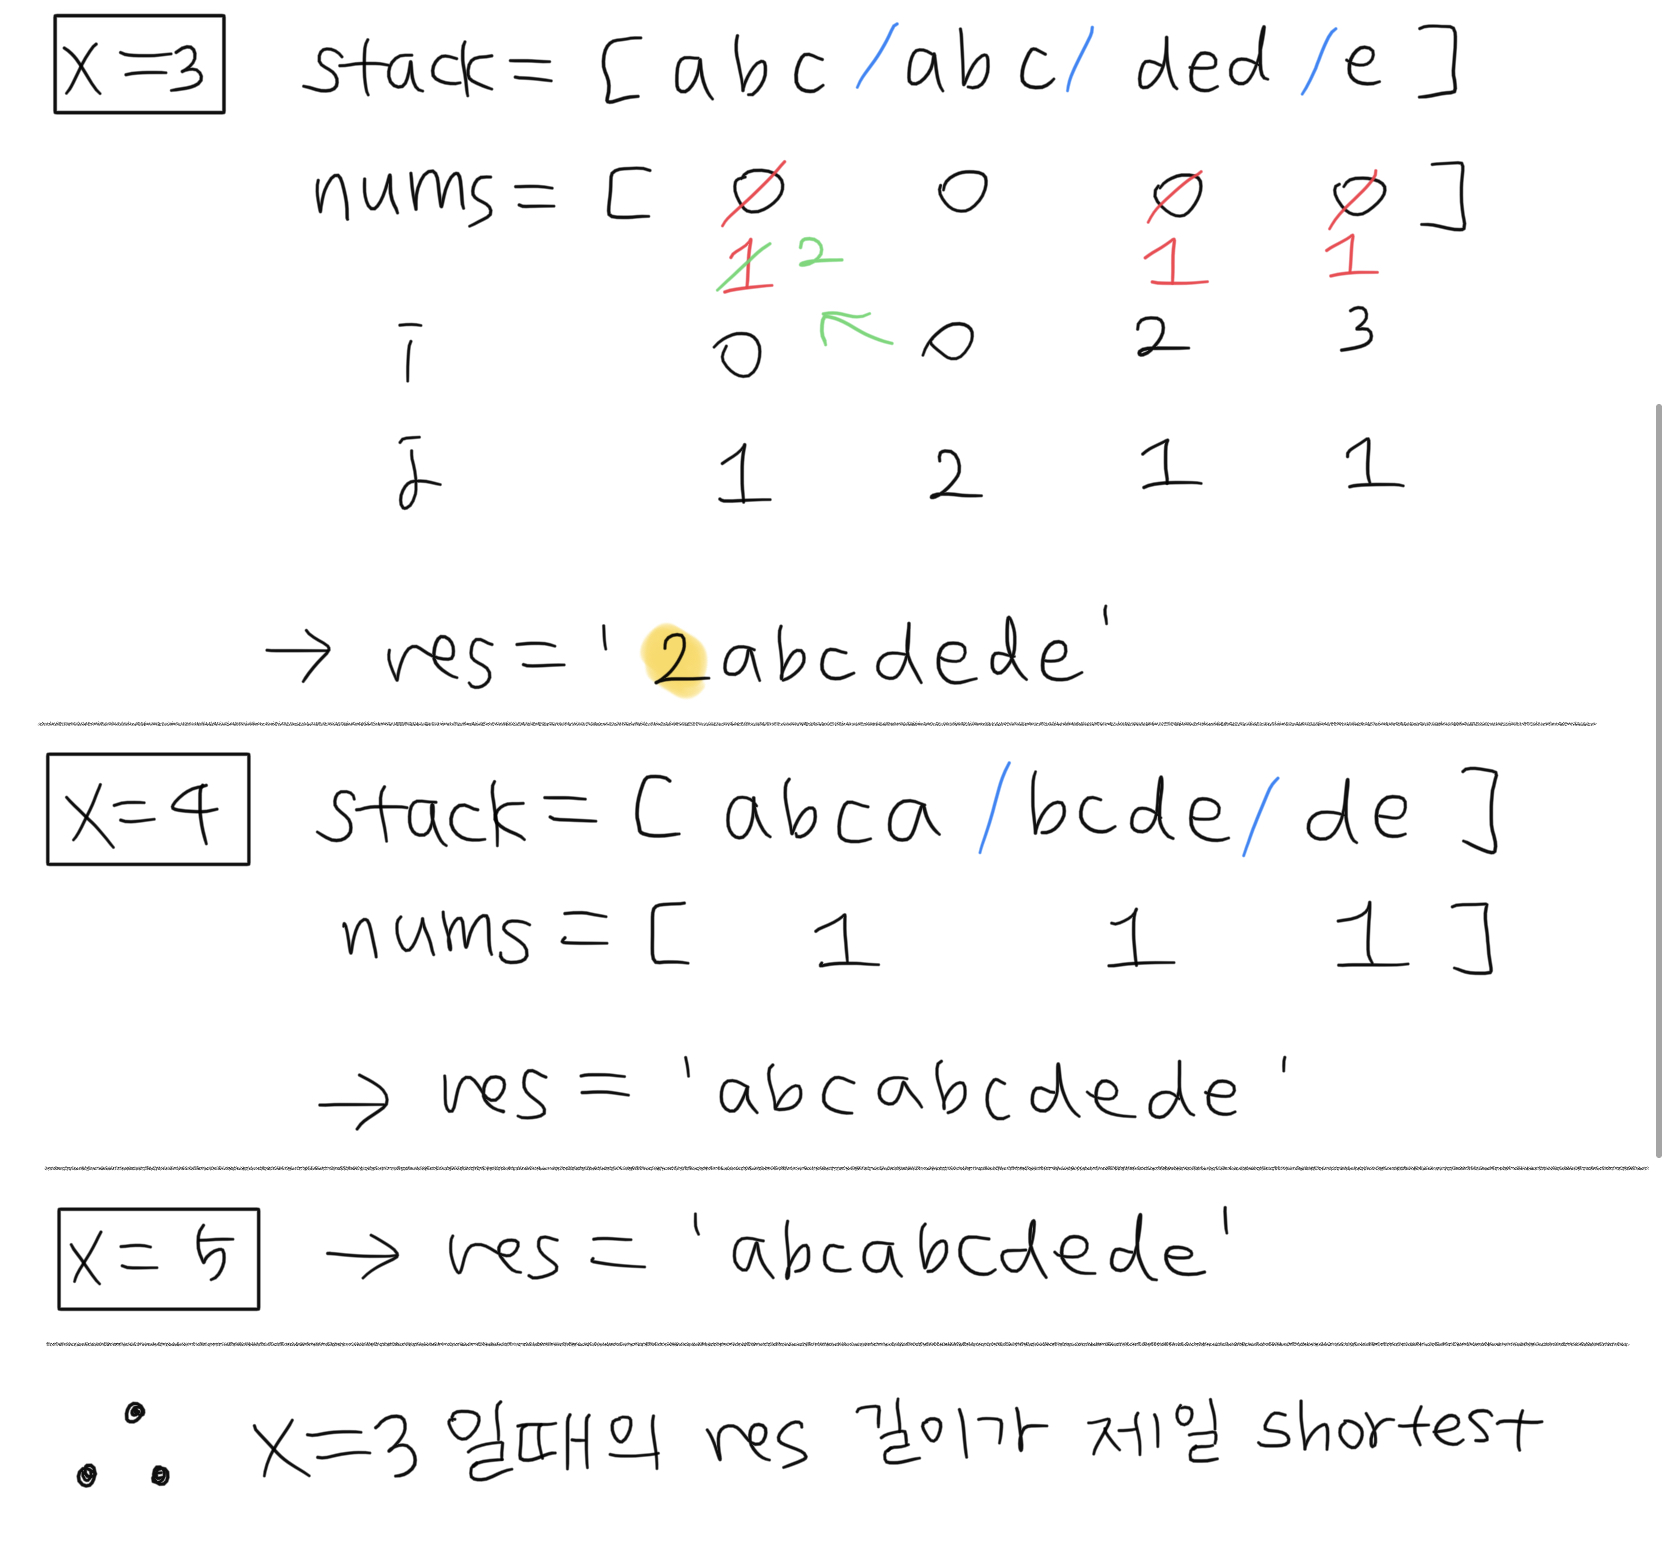 x=3 stack= [ abc / abc / ded / e ]
nums= [ 0 0 0 0 ]
1 2 1 1
i 0 0 2 3
j 1 2 1 1
→ res= ' 2abcdede '
x=4 stack= [ abca / bcde / de ]
nums= [ 1 1 1 ]
→ res= 'abcabcdede'
x=5 → res= 'abcabcdede'
∴ x=3 일때의 res 길이가 제일 shortest